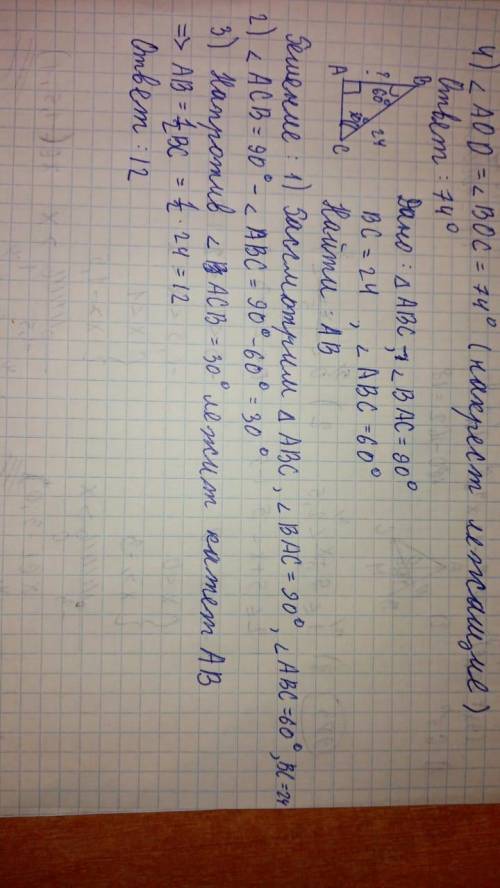 4) ∠AOD = ∠BOC = 74° (накрест лежащие)
Ответ: 74°
B
?
60°
24
A
30°
C
Дано: △ABC, ∠BAC = 90°
BC = 24, ∠ABC = 60°
Найти: AB
Решение: 1) Рассмотрим △ABC, ∠BAC = 90°, ∠ABC = 60°, BC = 24
2) ∠ACB = 90° - ∠ABC = 90° - 60° = 30°
3) Напротив ∠BACB = 30° лежит катет AB
=> AB = ½BC = ½ · 24 = 12
Ответ: 12